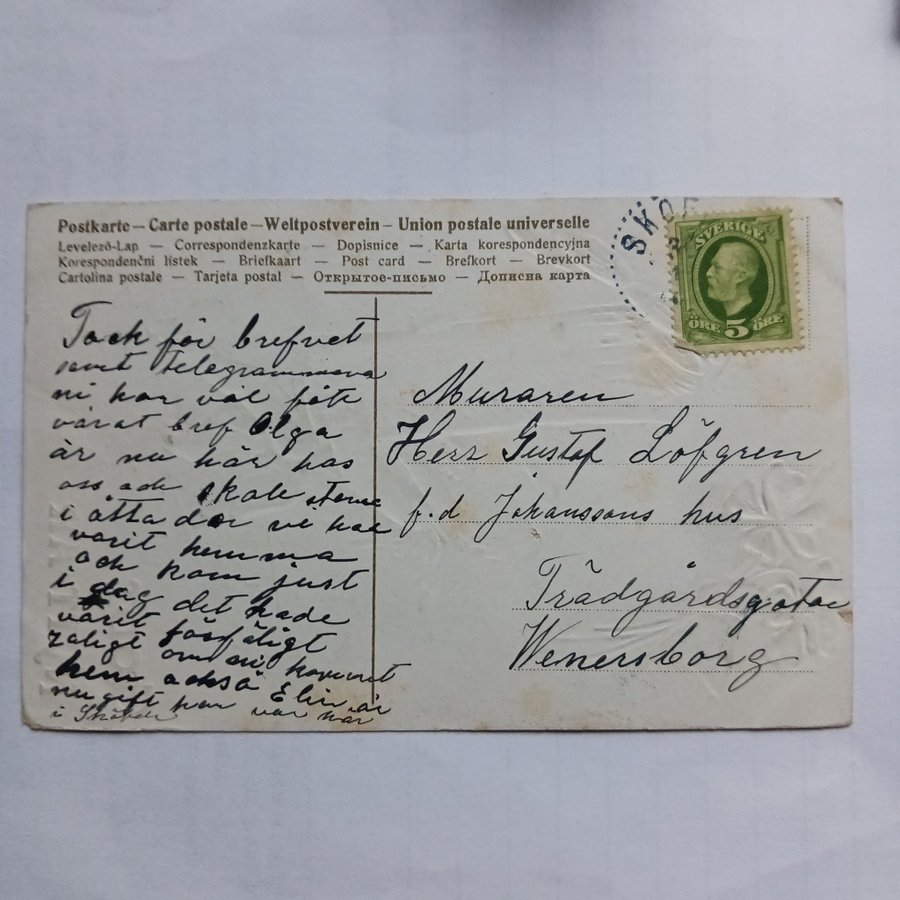 Postkarte – Carte postale – Weltpostverein – Union postale universelle
Levelező-Lap — Correspondenzkarte — Dopisnice — Karta korespondencyjna
Korespondenční lístek — Briefkaart — Post card — Brefkort — Brevkort
Cartolina postale — Tarjeta postal — Открытое-письмо — Дописна карта
SKÖF
SVERIGE
ÖRE 5 ÖRE
Tack för brefvet
samt telegrammena
ni har väl fått
vårat bref Olga
är nu här hos
oss och skall
i åtta dar vi har
varit hemma
och kom just
i dag det hade
varit
om ni kommit
hem också Elin är
nu gift hon var här
i Sköfde
Muraren
Herr Gustaf Löfgren
f.d Johanssons hus
Trädgårdsgatan
Wenersborg